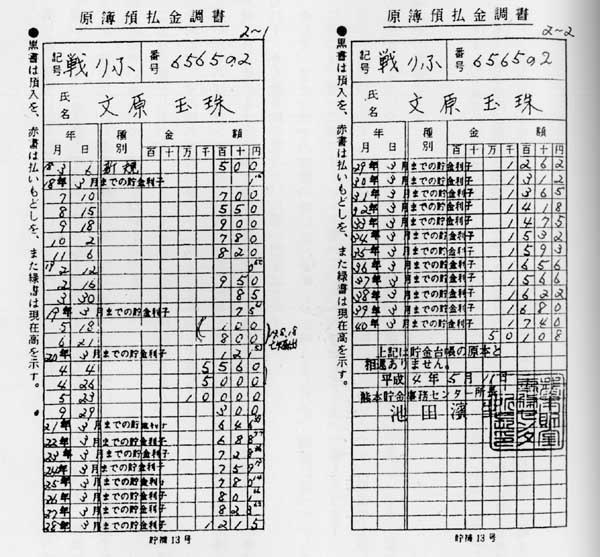 原簿預払金調書
2~1
●黒書は預入を、赤書は払いもどしを、また緑書は現在高を示す。
記号 戦りふ 番号
氏名 文原玉珠
年月日 種別 金額
百十万千百十円
18 3 6 新規 500
18年3月までの貯金利子
7 10 700
8 15 550
9 18 900
10 2 780
11 6 820
19 2 12
2 16 950
3 30 85
19年3月までの貯金利子 75
5 18 100
6 21 800
20年3月までの貯金利子 121
4 4 5560
4 26 5000
5 23 10000
9 29 300
21年3月までの貯金利子 646
22年3月までの貯金利子 688
23年3月までの貯金利子 728
24年3月までの貯金利子 759
25年3月までの貯金利子 780
26年3月までの貯金利子 801
27年3月までの貯金利子 823
28年3月までの貯金利子 1215
貯補13号
原簿預払金調書
2~2
●黒書は預入を、赤書は払いもどしを、また緑書は現在高を示す。
記号 戦りふ 番号
氏名 文原玉珠
年月日 種別 金額
百十万千百十円
29年3月までの貯金利子 1262
30年3月までの貯金利子 1312
31年3月までの貯金利子 1365
32年3月までの貯金利子 1418
33年3月までの貯金利子 1475
34年3月までの貯金利子 1532
35年3月までの貯金利子 1593
36年3月までの貯金利子 1656
37年3月までの貯金利子 1566
38年3月までの貯金利子 1622
39年3月までの貯金利子 1680
40年3月までの貯金利子 1740
50108
上記は貯金台帳の原本と
相違ありません。
平成4年5月11日
熊本貯金事務センター所長
池田濱
貯補13号